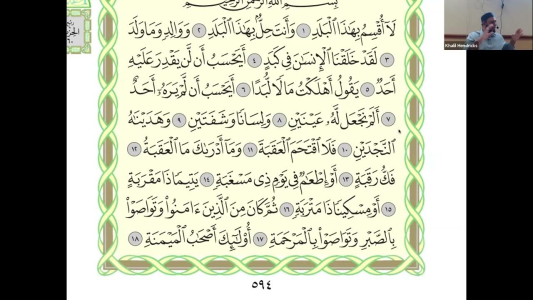 بِسْمِ ٱللَّهِ ٱلرَّحْمَٰنِ ٱلرَّحِيمِ
لَآ أُقْسِمُ بِهَٰذَا ٱلْبَلَدِ ١ وَأَنتَ حِلٌّۢ بِهَٰذَا ٱلْبَلَدِ ٢ وَوَالِدٍ وَمَا وَلَدَ
٣ لَقَدْ خَلَقْنَا ٱلْإِنسَٰنَ فِى كَبَدٍ ٤ أَيَحْسَبُ أَن لَّن يَقْدِرَ عَلَيْهِ
أَحَدٌ ٥ يَقُولُ أَهْلَكْتُ مَالًا لُّبَدًا ٦ أَيَحْسَبُ أَن لَّمْ يَرَهُۥٓ أَحَدٌ
٧ أَلَمْ نَجْعَل لَّهُۥ عَيْنَيْنِ ٨ وَلِسَانًا وَشَفَتَيْنِ ٩ وَهَدَيْنَٰهُ
ٱلنَّجْدَيْنِ ١٠ فَلَا ٱقْتَحَمَ ٱلْعَقَبَةَ ١١ وَمَآ أَدْرَىٰكَ مَا ٱلْعَقَبَةُ ١٢
فَكُّ رَقَبَةٍ ١٣ أَوْ إِطْعَٰمٌ فِى يَوْمٍ ذِى مَسْغَبَةٍ ١٤ يَتِيمًا ذَا مَقْرَبَةٍ
١٥ أَوْ مِسْكِينًا ذَا مَتْرَبَةٍ ١٦ ثُمَّ كَانَ مِنَ ٱلَّذِينَ ءَامَنُوا۟ وَتَوَاصَوْا۟
بِٱلصَّبْرِ وَتَوَاصَوْا۟ بِٱلْمَرْحَمَةِ ١٧ أُو۟لَٰٓئِكَ أَصْحَٰبُ ٱلْمَيْمَنَةِ ١٨
٥٩٤
ربع
الحزب
٦٠
Khalil Hendricks